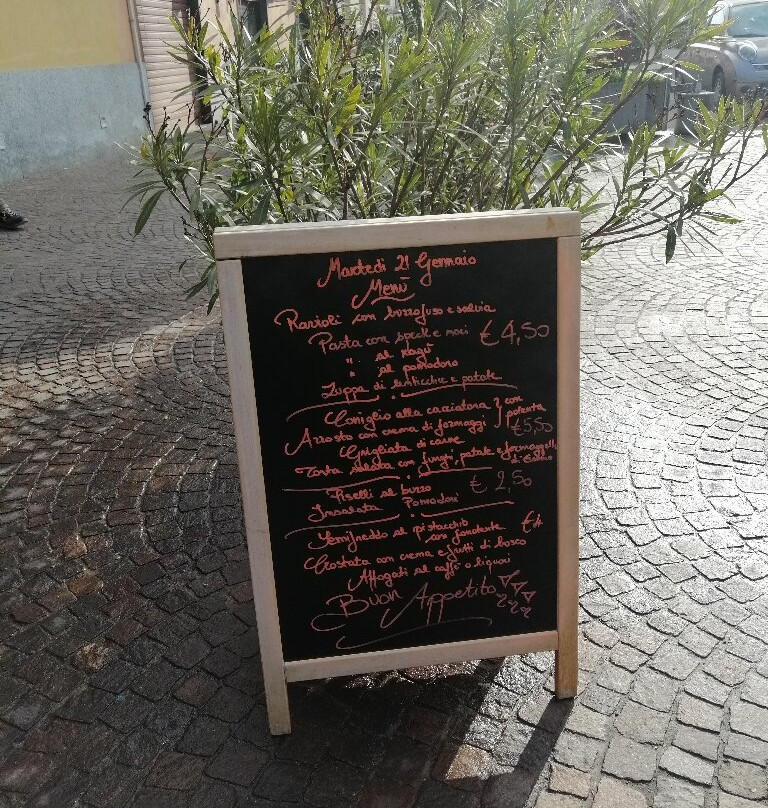 Martedì 21 Gennaio
Menù
Ravioli con burro fuso e salvia
Pasta con speck e noci € 4,50
" al ragù
" al pomodoro
Zuppa di lenticchie e patate
Coniglio alla cacciatora } con polenta
Arrosto con crema di formaggi € 5,50
Grigliata di carne
Torta salata con funghi, patate e formaggella
Piselli al burro € 2,50
Insalata Pomodori
Semifreddo al pistacchio € 4
con fondente
Crostata con crema e frutti di bosco
Affogati al caffè o liquori
Buon Appetito